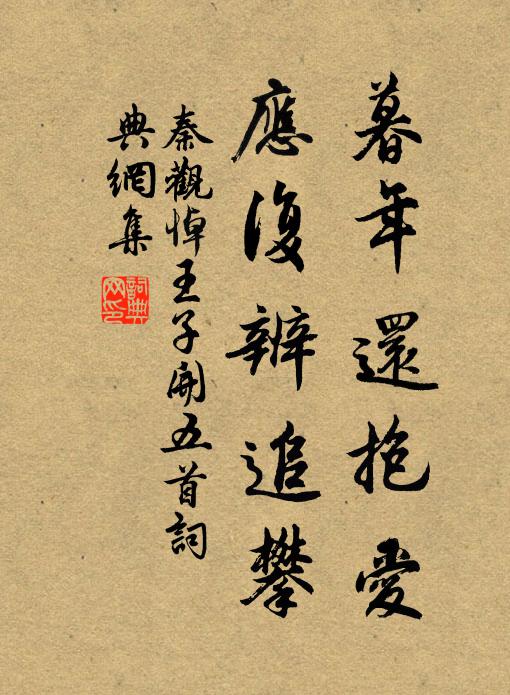 暮年還抱愛
應復辦追攀
秦觀悼王子開五首詞
典網集
詞典網印